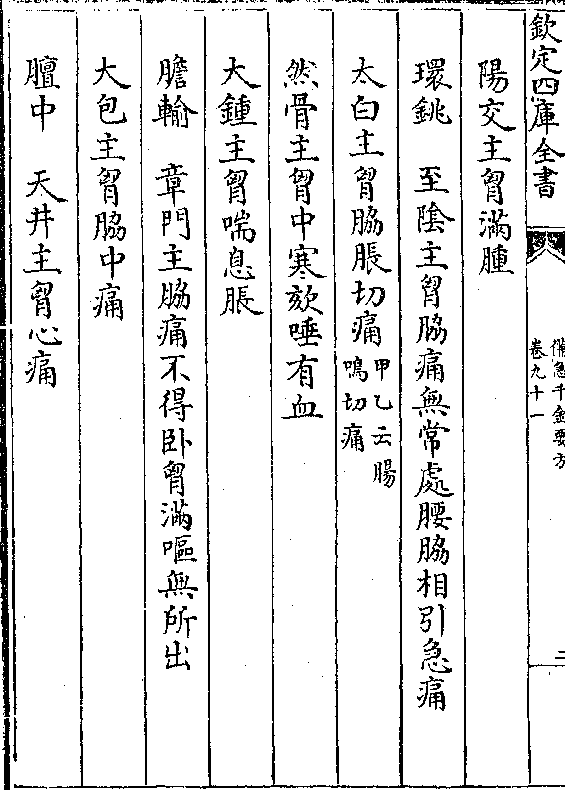 欽定四庫全書
備急千金要方
卷九十一
二
陽交主胷滿腫
環銚　至陰主胷脇痛無常處腰脇相引急痛
太白主胷脇脹切痛甲乙云腸鳴切痛
然骨主胷中寒欬唾有血
大鍾主胷喘息脹
膽輸　章門主脇痛不得卧胷滿嘔無所出
大包主胷脇中痛
膻中　天井主胷心痛